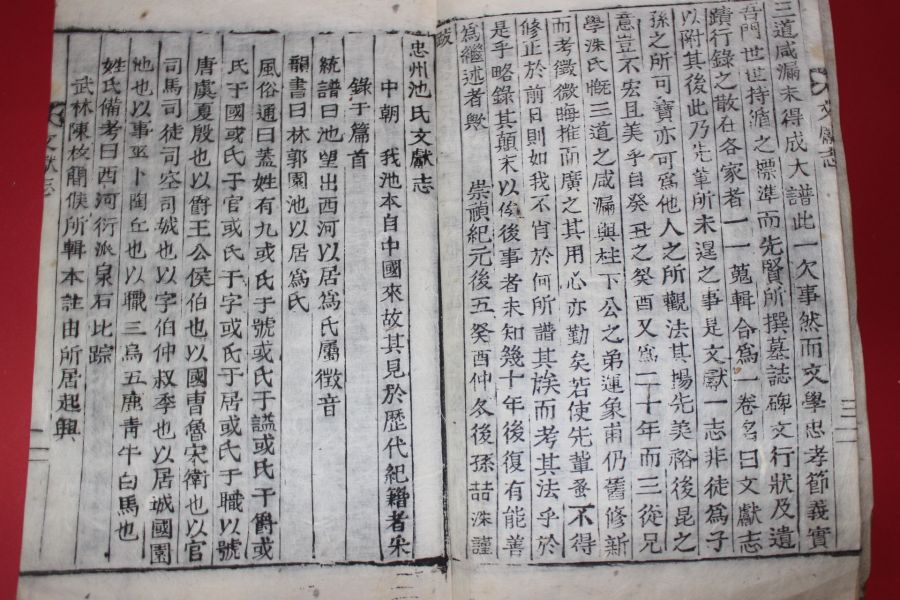 三道咸漏未得成大譜此一欠事然而文學忠孝節義實
吾門世世持滄之標準而先賢所撰墓誌碑文行狀及遺
蹟行錄之散在各家者一一蒐輯合爲一卷名曰文獻志
以附其後此乃先輩所未遑之事是文獻一志非徒爲子
孫之所可寶亦可爲他人之所觀法其揚先美裕後昆之
意豈不宏且美乎自癸丑之癸酉又爲二十年而三從兄
學洙氏慨三道之咸漏與柱下公之弟運象甫仍舊修新
而考徵微晦推而廣之其用心亦勤矣若使先輩蚤不得
修正於前日則如我不肖於何所譜其族而考其法乎於
是乎略錄其顚末以俟後事者未知幾十年後復有能善
爲繼述者歟 崇禎紀元後五癸酉仲冬後孫喆洙謹
跋
文獻志
三
忠州池氏文獻志
中朝 我池本自中國來故其見於歷代紀籍者采
錄于篇首
統譜曰池望出西河以居爲氏屬徵音
韻書曰林郭園池以居爲氏
風俗通曰蓋姓有九或氏于號或氏于謚或氏于爵或
氏于國或氏于官或氏于字或氏于居或氏于職以號
唐虞夏殷也以爵王公侯伯也以國曹魯宋衛也以官
司馬司徒司空司城也以字伯仲叔季也以居城國園
池也以事巫卜陶丘也以職三烏五鹿靑牛白馬也
姓氏備考曰西河衍派泉石比踪
武林陳枚簡侯所輯本註由所居起興
文獻志
一